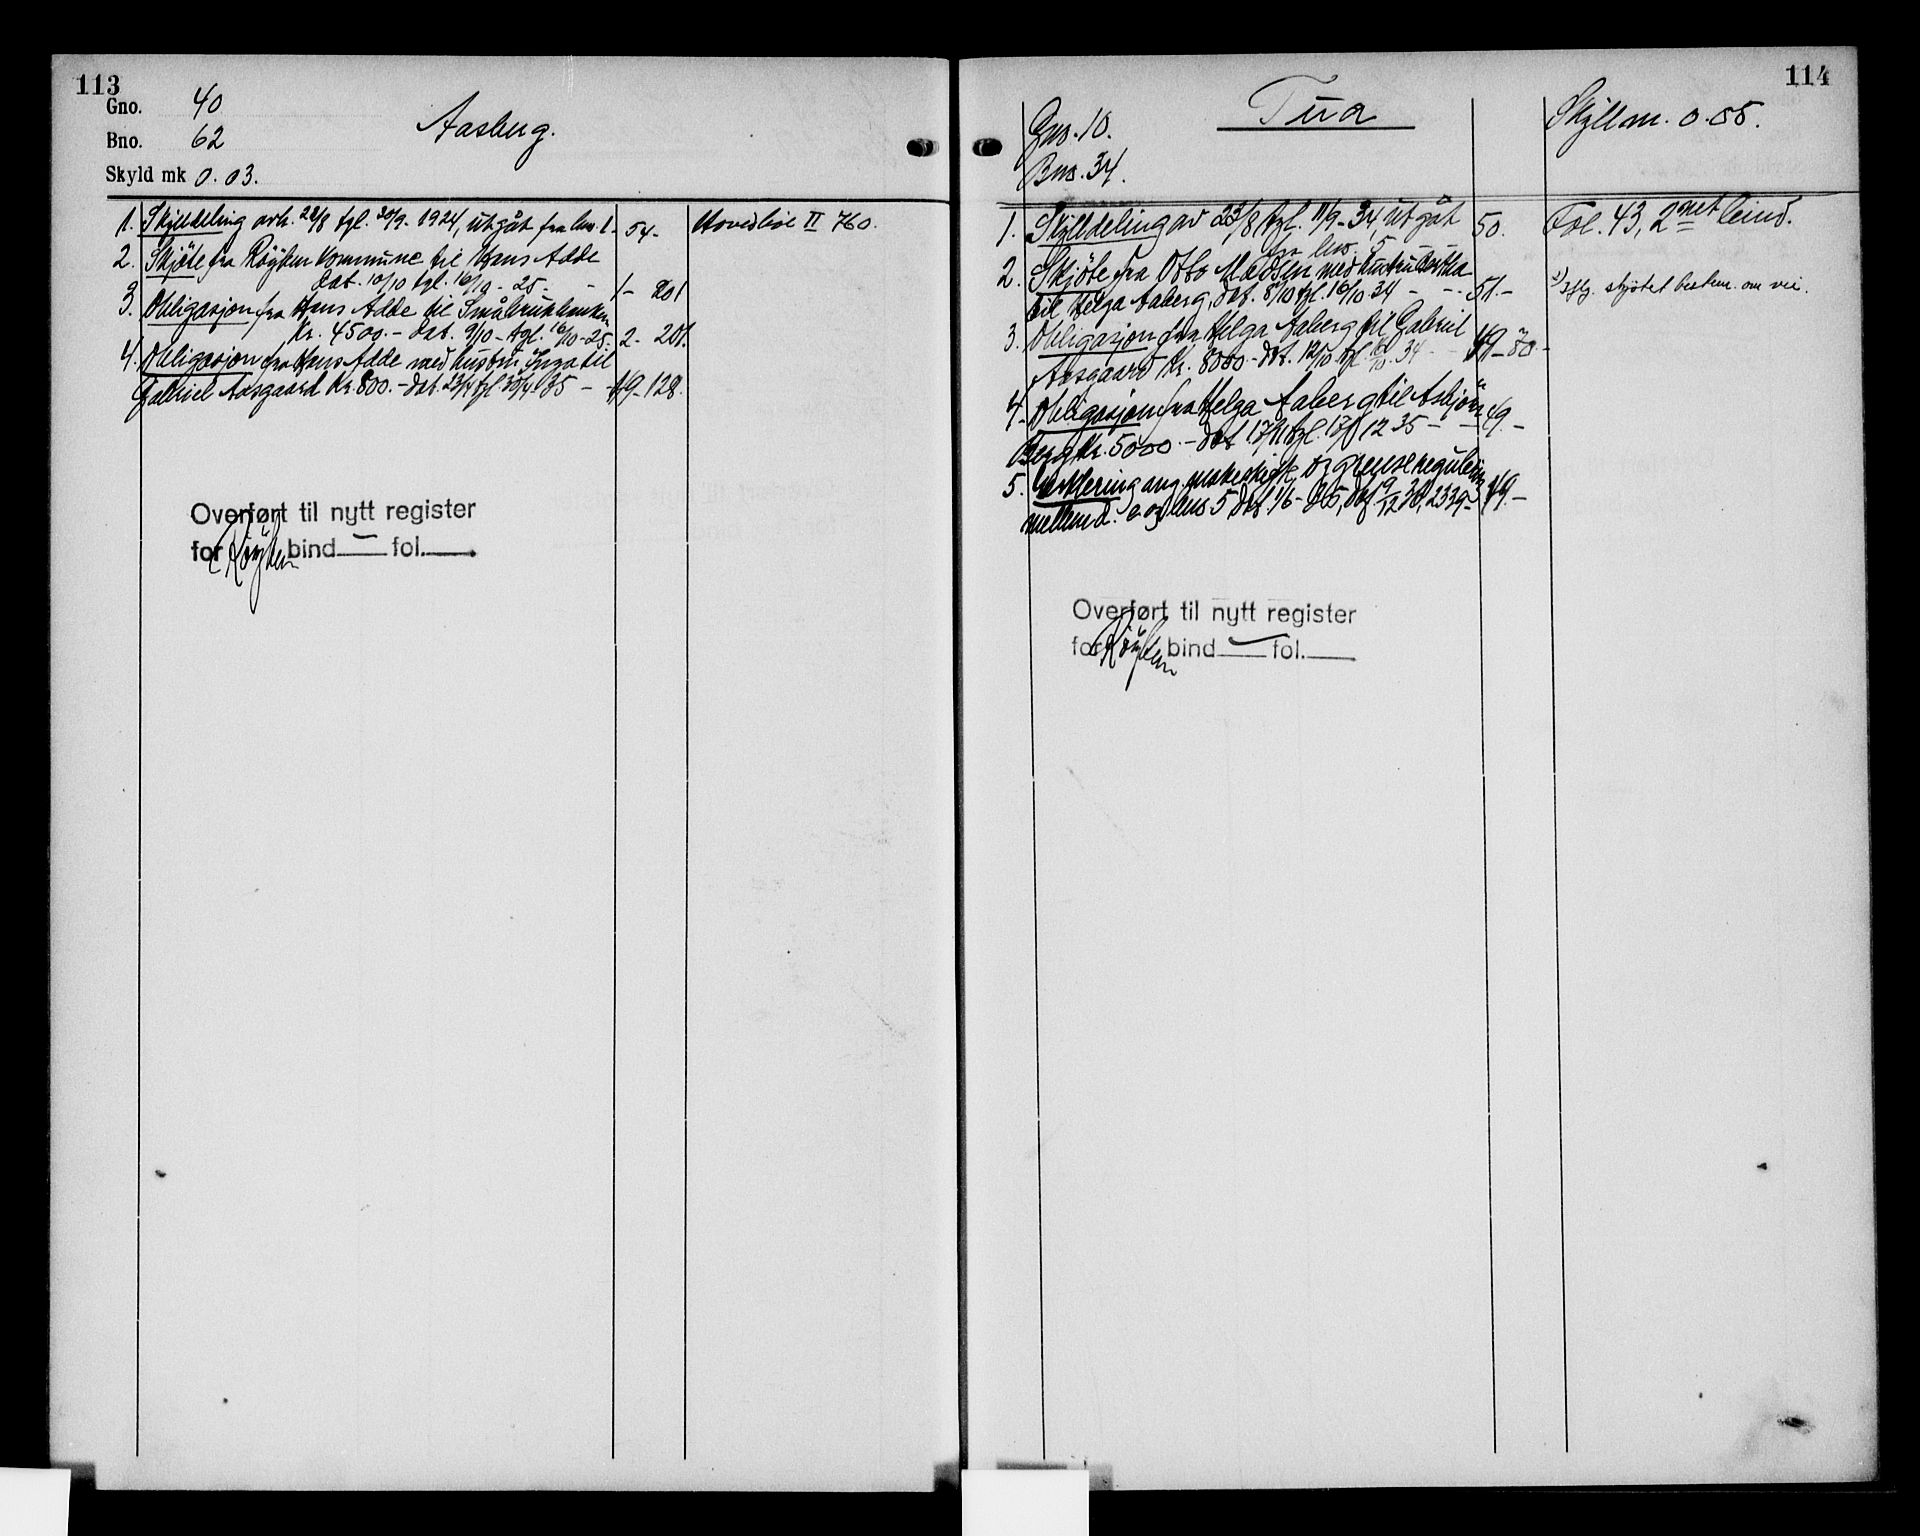 113
Gno. 40
Bno. 62
Skyld mk 0.03.
Aasberg.
1. Skylddeling avh. 22/8 tgl. 20/9-1924, utgåt fra bno. 1- 54- Hovedbøl II 760.
2. Skjöte fra Röyken Kommune til Hans Adde
dat. 10/10 tgl. 16/10-25- - 1- 201
3. Obligasjon fra Hans Adde til Småbrukbanken
Kr. 4500.- dat. 9/10- tgl. 16/10-25- 2- 201.
4. Obligasjon fra Hans Adde med hustru Inga til
Gabriel Aasgaard Kr. 800.- dat. 23/4 tgl 30/4 35 - - 49-128.
Overført til nytt register
for Röyken bind — fol.
114
Gno. 10.
Bno. 34.
Tua
Skyll m. 0.55.
1. Skylldeling av 23/8 tgl. 11/9-34, utgåt 50. Fol. 43, 2net bind.
fra bno. 5
2. Skjöte fra Otto Madsen med hustru Bertha
til Helga Aaberg, dat. 8/10 tgl. 16/10 34 - - 51.- 2) Iflg. skjötet bestem. om vei.
3. Obligasjon fra Helga Aaberg til Gabriel
Aasgaard Kr. 8000- dat. 12/10 tgl 16/10. 34 - - 49-80-
4. Obligasjon fra Helga Aaberg til Asbjörn
Berg Kr. 5000.- dat 17/11 tgl. 17/12 35- - 49.-
5. Erklering ang. makeskifte og grenseregulering
mellem d. e. og bno 5 dat. 1/6-35, dbf. 9/12 38, 2339- 49.-
Overført til nytt register
for Röyken bind fol.